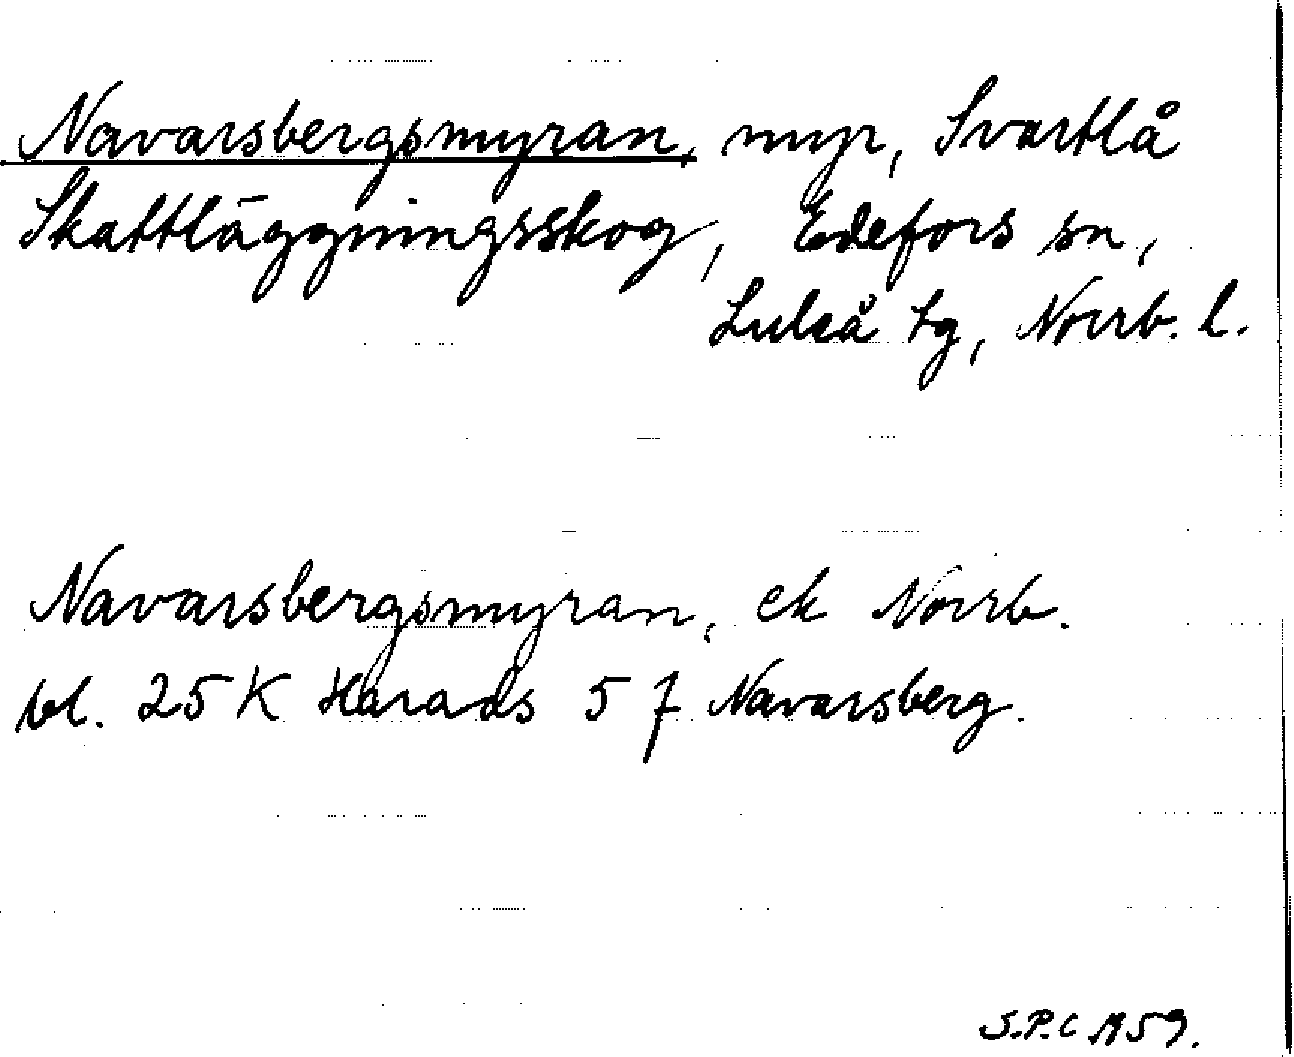 Navarsbergsmyran, myr, Svartlå
Skattläggningsskog, Edefors sn,
Luleå tg, Norrb. l.
Navarsbergsmyran, ek Norrb.
bl. 25 K Harads 5 f Navarsberg.
S.P.C 1959.